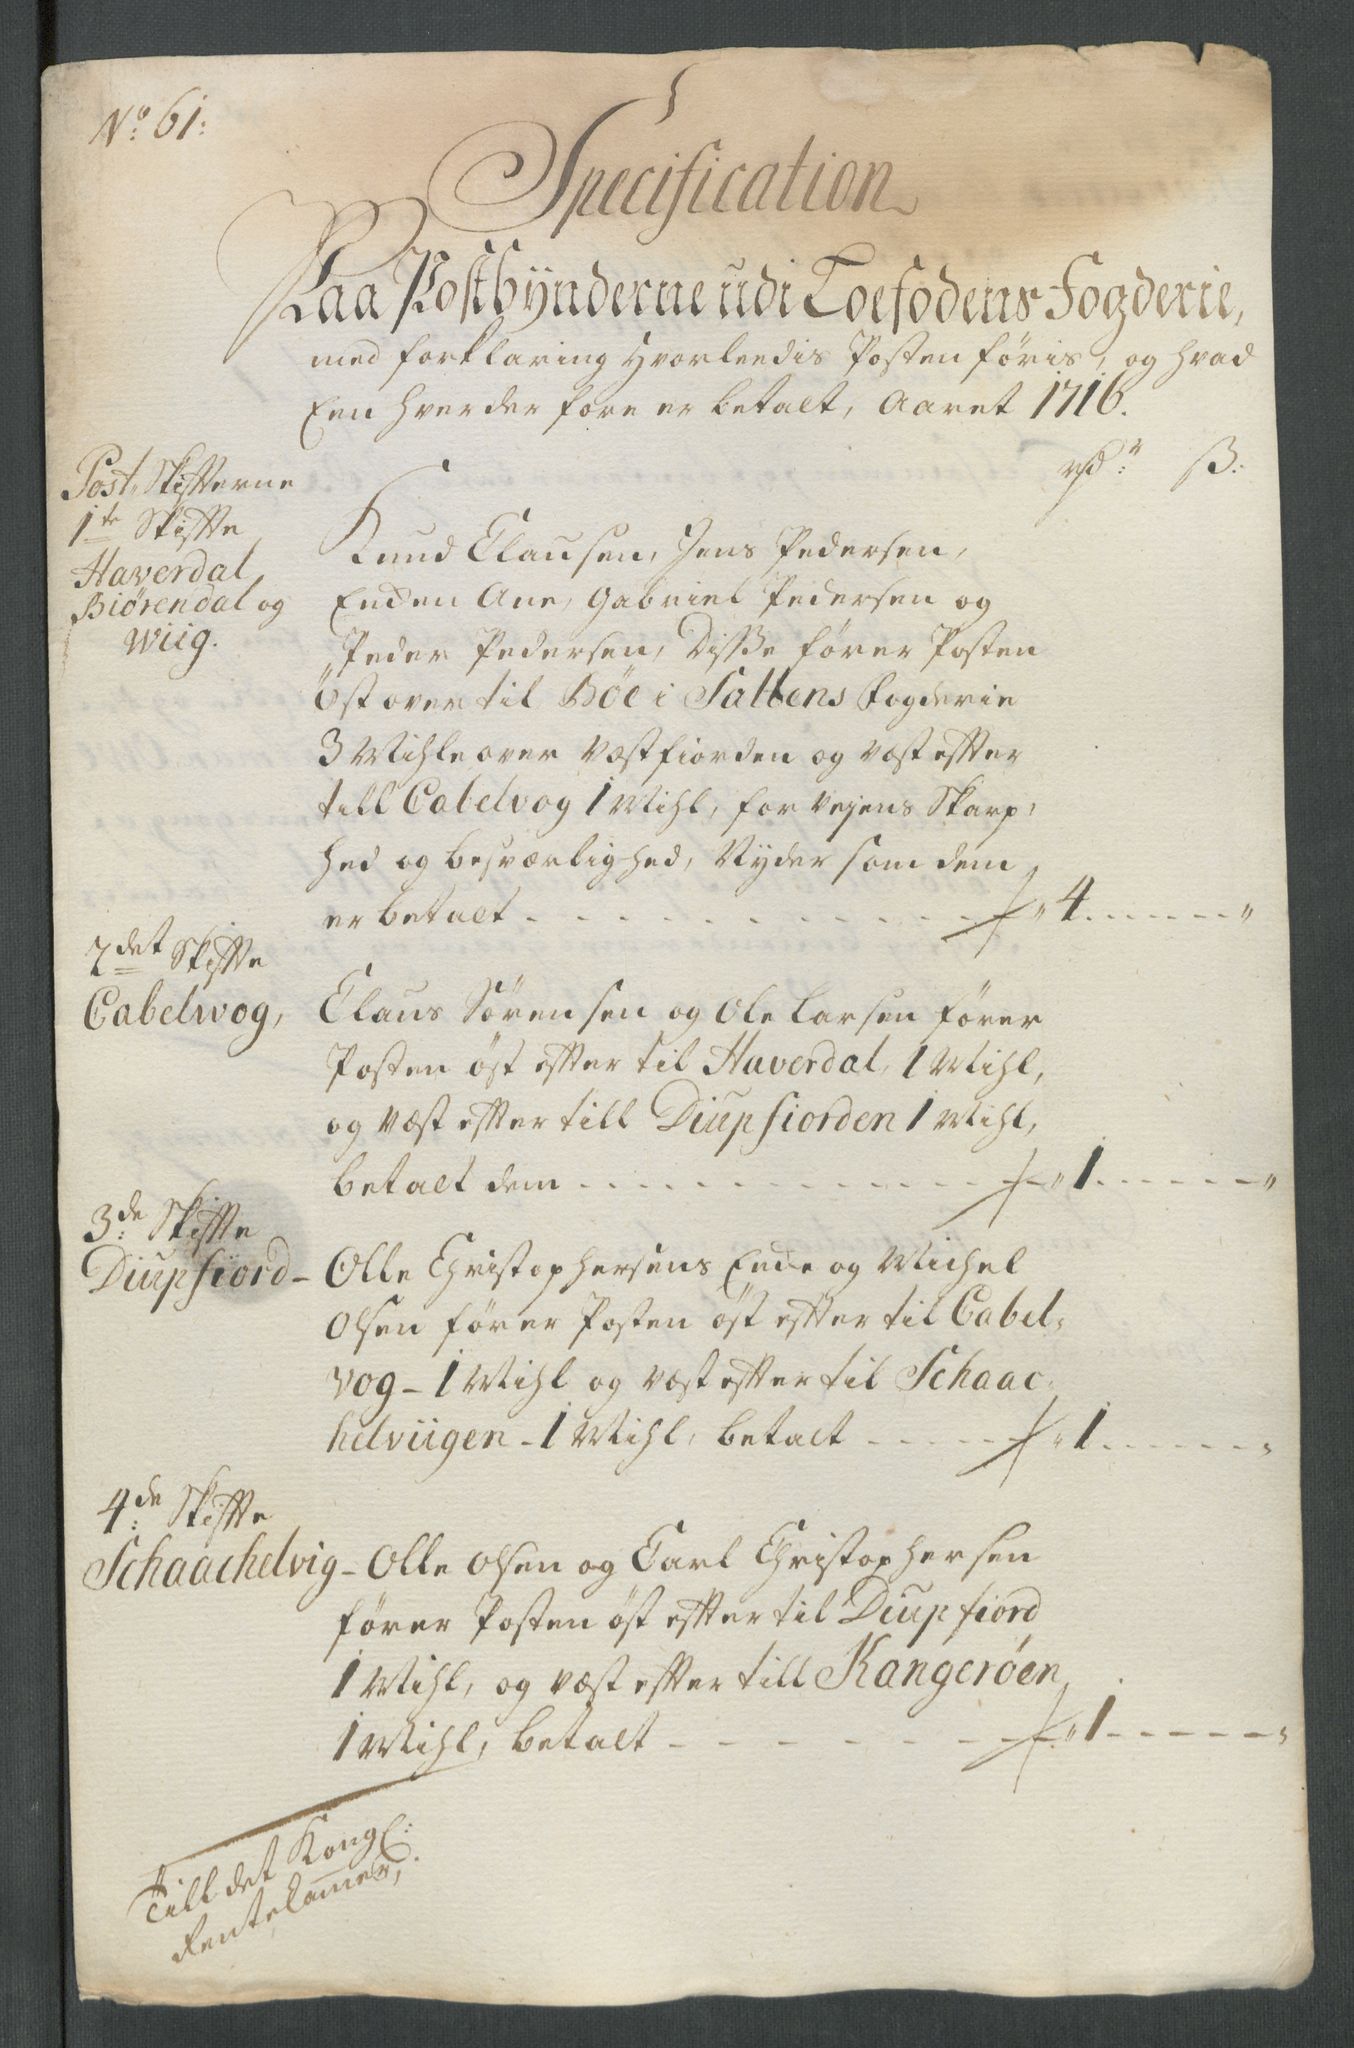 No 61:
Specification
Paa Postbynderne udi Loefodens Fogderie,
med forklaring hvorleedis Posten föris, og hvad
Een hver der fore er betalt, Aaret 1716.
rd:r ß:
Post Skifterne
1te Skifte
Haverdal
Biørendal og
Wiig.
Knud Clausen, Jens Pedersen,
Encken Ane, Gabriel Pedersen og
Peder Pedersen, Disse fører Posten
öst over til Böe i Saltens Fogderie
3 Mihle over Vestfiorden og vest effter
till Cabelvog 1 Mihl, for Vejens Skarp,
hed og besværlighed, Nyder som dem
er betalt - - - 4 - - - "
2det Skifte
Cabelwog,
Claus Sörensen og Ole Larsen förer
Posten öst effter til Haverdal, 1 Mihl,
og væst effter till Diupfiorden 1 Mihl,
betalt dem - - - 1 - - - "
3de Skifte
Diupfiord -
Olle Christophersens Encke og Michel
Olsen förer Posten öst effter til Cabel,
vog - 1 Mihl og væst effter til Schaac,
helviigen - 1 Mihl, betalt - - - 1 - - - "
4de Skifte
Schaachelvig - Olle Olsen og Carl Christophersen
förer Posten öst effter til Diupfiord
1 Mihl, og væst effter till Kangeröen
1 Mihl, betalt - - - 1 - - - "
Till det Kongl:
Rentekammer,